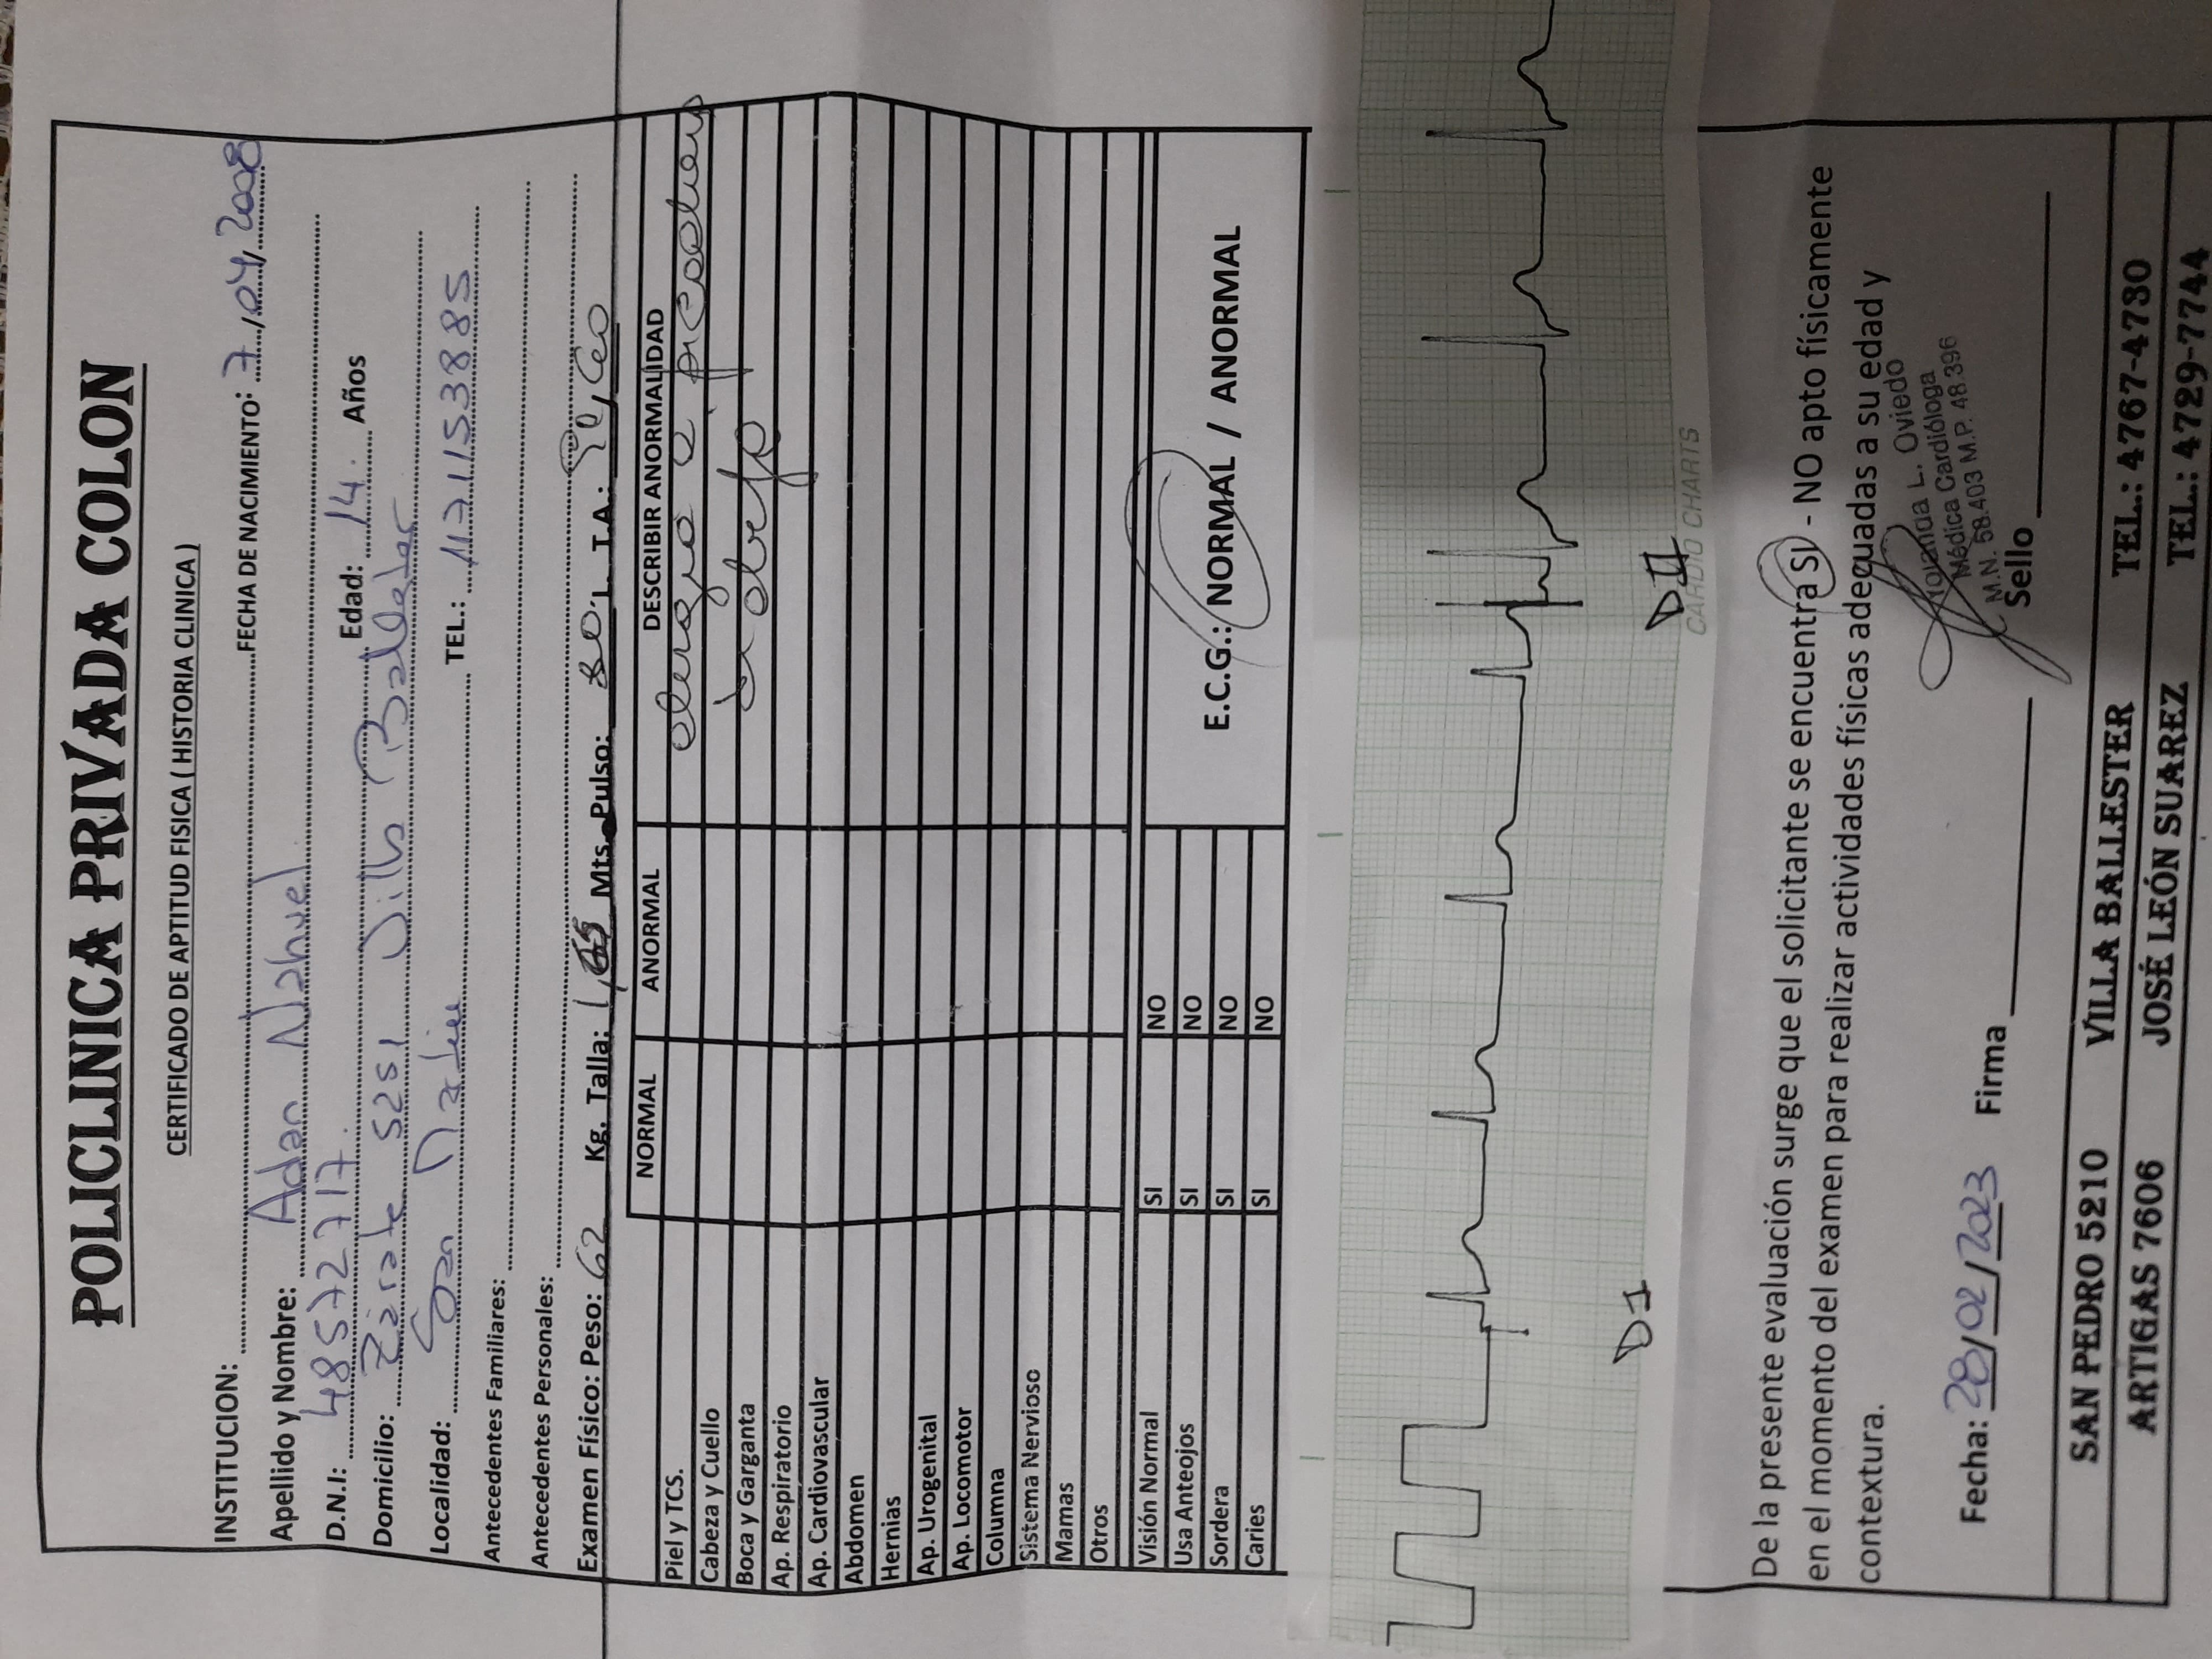 POLICLINICA PRIVADA COLON
CERTIFICADO DE APTITUD FISICA ( HISTORIA CLINICA )
INSTITUCION: FECHA DE NACIMIENTO: 7/04/2008
Apellido y Nombre: Adan Nahuel
D.N.I: 48572717. Edad: 14. Años
Domicilio: Zárate 5251 Villa Ballester
Localidad: San Martin TEL.: 1171153885
Antecedentes Familiares:
Antecedentes Personales:
Examen Físico: Peso: 62 Kg. Talla: Mts. Pulso: 80 T.A.:
NORMAL ANORMAL DESCRIBIR ANORMALIDAD
Piel y TCS. alergia a picadura
Cabeza y Cuello
Boca y Garganta de abeja
Ap. Respiratorio
Ap. Cardiovascular
Abdomen
Hernias
Ap. Urogenital
Ap. Locomotor
Columna
Sistema Nervioso
Mamas
Otros
Visión Normal SI NO
Usa Anteojos SI NO
Sordera SI NO
Caries SI NO
E.C.G.: NORMAL / ANORMAL
D1 DII
CARDIO CHARTS
De la presente evaluación surge que el solicitante se encuentra SI - NO apto físicamente
en el momento del examen para realizar actividades físicas adequadas a su edad y
contextura.
Yolanda L. Oviedo
Médica Cardióloga
M.N. 58.403 M.P. 48.396
Fecha: 28/02/2023 Firma Sello
SAN PEDRO 5210 VILLA BALLESTER TEL.: 4767-4730
ARTIGAS 7606 JOSÉ LEÓN SUAREZ TEL.: 4729-7744